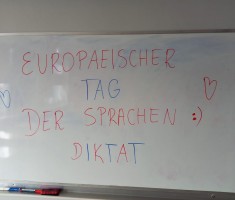 EUROPAEISCHER
TAG
DER SPRACHEN :)
DIKTAT